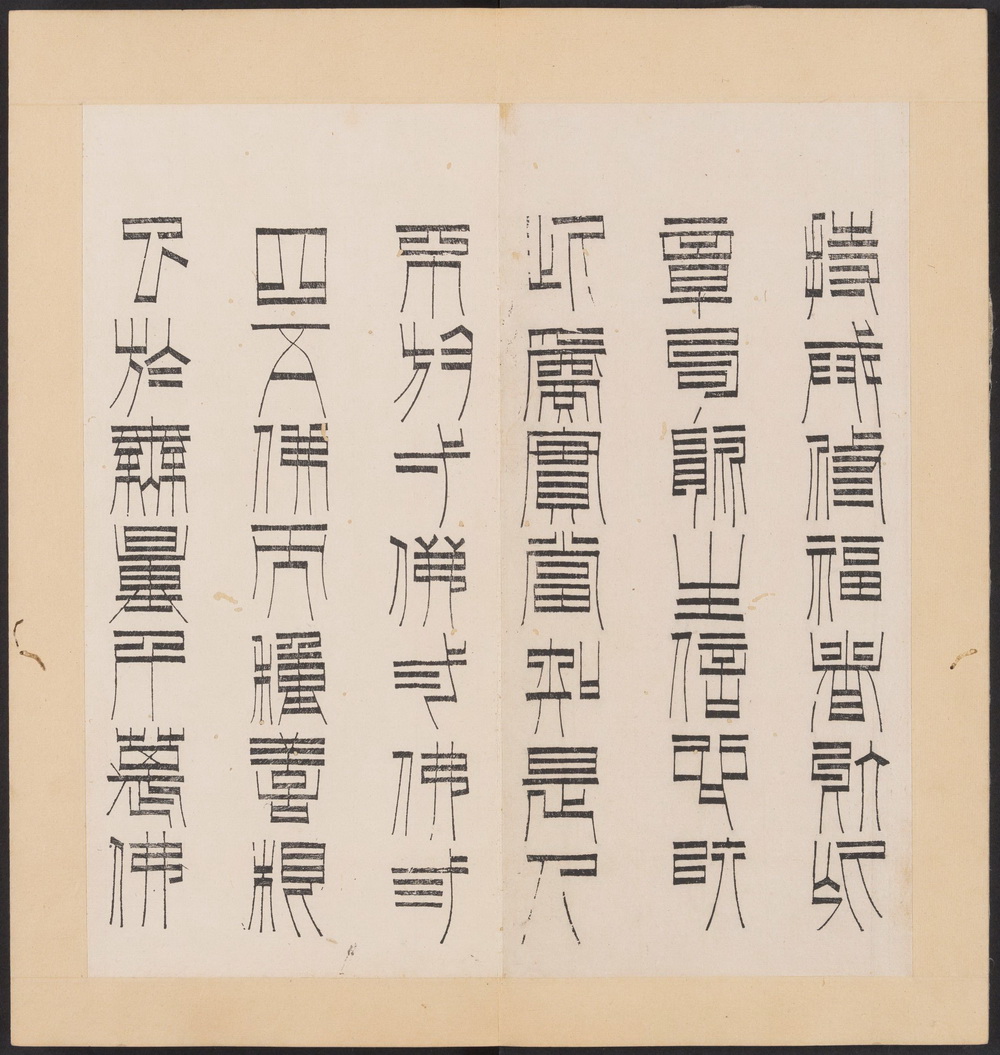 持戒修福者於此
章句能生信心以
此為實當知是人
不於弌佛弍佛弎
四五佛而種善根
已於無量千萬佛